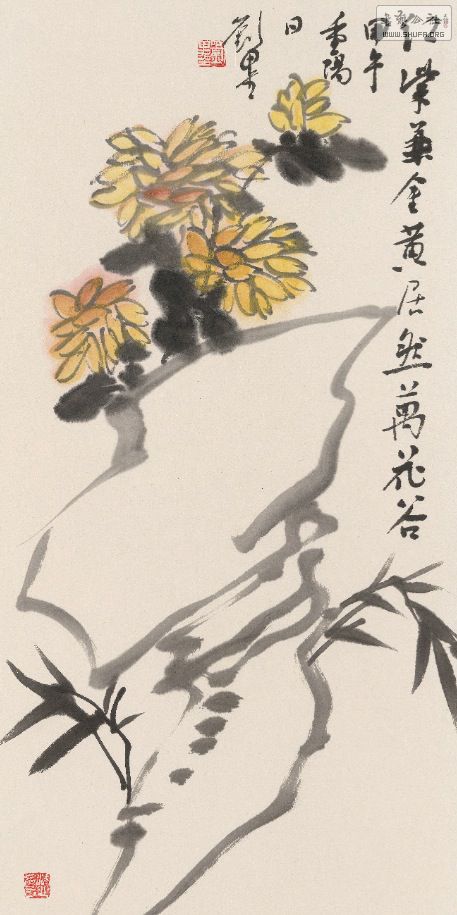 紫兼金黄居然萬花谷
甲午
重陽
日
劉墨
WWW.SHUFA.ORG